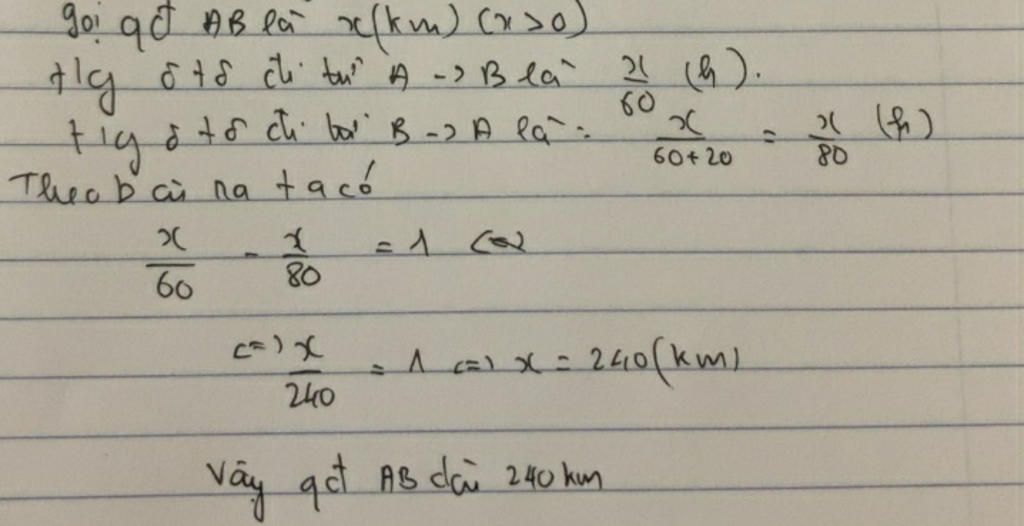 gọi qđ AB là x(km) (x>0)
t/g ô tô đi từ A -> B là x/60 (h).
t/g ô tô đi từ B -> A là: x/(60+20) = x/80 (h)
Theo bài ra ta có
x/60 - x/80 = 1 <=>
<=> x/240 = 1 <=> x = 240(km)
Vậy qđ AB dài 240 km